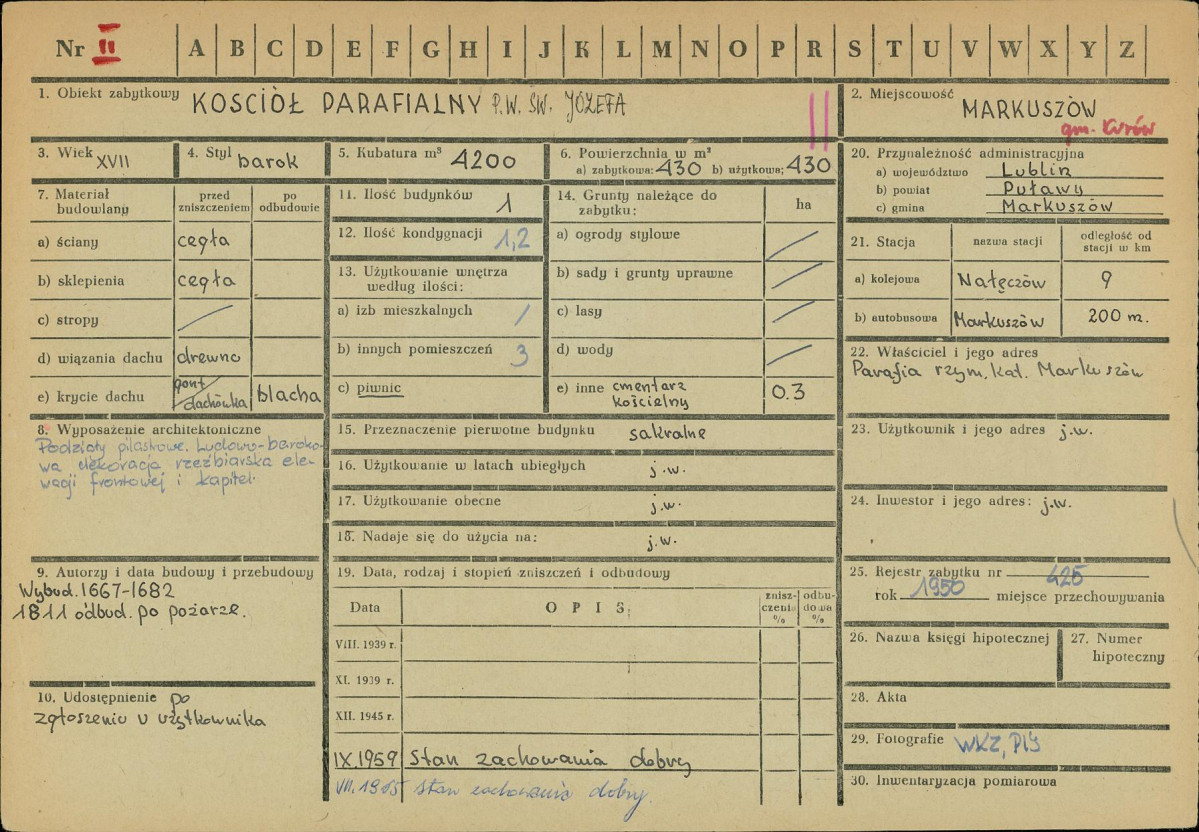 Nr II A B C D E F G H I J K L M N O P R S T U V W X Y Z
1. Obiekt zabytkowy KOSCIÓŁ PARAFIALNY P.W. ŚW. JÓZEFA II
2. Miejscowość MARKUSZÓW
gm. Kurów
3. Wiek XVII
4. Styl barok
5. Kubatura m³ 4200
6. Powierzchnia w m²
a) zabytkowa: 430 b) użytkowa: 430
7. Materiał budowlany
przed zniszczeniem
po odbudowie
a) ściany cegła
b) sklepienia cegła
c) stropy /
d) wiązania dachu drewno
e) krycie dachu gont/dachówka blacha
8. Wyposażenie architektoniczne
Podziały pilastrowe. Ludowo-baroko-
wa dekoracja rzeźbiarska ele-
wacji frontowej i kapitel.
9. Autorzy i data budowy i przebudowy
Wybud. 1667-1682
1811 odbud. po pożarze.
10. Udostępnienie po
zgłoszeniu u użytkownika
11. Ilość budynków 1
12. Ilość kondygnacji 1,2
13. Użytkowanie wnętrza
według ilości:
a) izb mieszkalnych /
b) innych pomieszczeń 3
c) piwnic
14. Grunty należące do
zabytku: ha
a) ogrody stylowe /
b) sady i grunty uprawne /
c) lasy /
d) wody /
e) inne cmentarz
kościelny 0.3
15. Przeznaczenie pierwotne budynku sakralne
16. Użytkowanie w latach ubiegłych j.w.
17. Użytkowanie obecne j.w.
18. Nadaje się do użycia na: j.w.
19. Data, rodzaj i stopień zniszczeń i odbudowy
Data OPIS znisz-czenia % odbu-dowa %
VIII. 1939 r.
XI. 1939 r.
XII. 1945 r.
IX.1959 Stan zachowania dobry
VII.1965 stan zachowania dobry.
20. Przynależność administracyjna
a) województwo Lublin
b) powiat Puławy
c) gmina Markuszów
21. Stacja nazwa stacji odległość od stacji w km
a) kolejowa Nałęczów 9
b) autobusowa Markuszów 200 m.
22. Właściciel i jego adres
Parafia rzym. kat. Markuszów
23. Użytkownik i jego adres j.w.
24. Inwestor i jego adres: j.w.
25. Rejestr zabytku nr 425
rok 1956 miejsce przechowywania
26. Nazwa księgi hipotecznej
27. Numer
hipoteczny
28. Akta
29. Fotografie WKZ, PIS
30. Inwentaryzacja pomiarowa